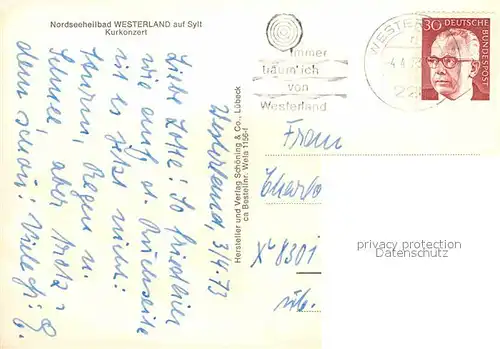 Nordseeheilbad WESTERLAND auf Sylt
Kurkonzert
Westerland, 3/4.73
Liebe Lotte! So friedlich
wie auf d. Rückseite
ist es jetzt nicht!
Sturm, Regen u.
Schnee, aber trotz-
dem schön! Viele Gr.
Hersteller und Verlag Schöning & Co., Lübeck
ca Bestellnr. Wella 1156-f
immer
träum' ich
von
Westerland
WESTER
4.4.73
30 DEUTSCHE
BUNDESPOST
Frau
8301
privacy protection
Datenschutz